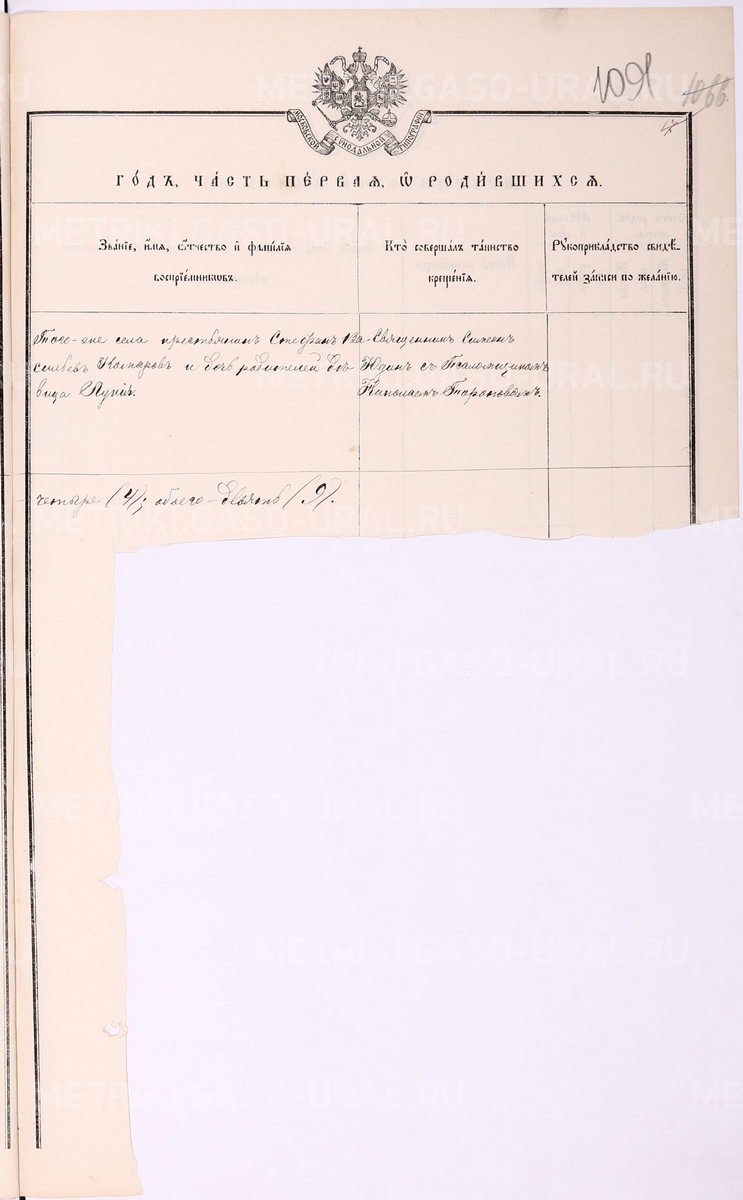 109
1066
МОСКОВСКОЙ СУНОДАЛЬНОЙ ТИПОГРАФІИ
ГО́ДЪ, ЧА́СТЬ ПЕ́РВАЯ, Ѡ РОДИ́ВШИХСЯ.
Зва́нїе, и́мя, ѻ҆́тчество и҆ фами́лїѧ
воспрїе́мникѡвъ.
Кто̀ соверша́лъ та́инство
креще́нїѧ.
Рꙋкоприкла́дство свидѣ́-
телей за́писи по жела́нїю.
Того-же села крестьянинъ Стефанъ Ва-
сильевъ и дочь родителей дѣ-
вица
Священникъ Симеон
Юдинъ съ Псаломщикомъ
Николаемъ
четыре (4); обоего - девять (9).
METRIKI.GASO-URAL.RU